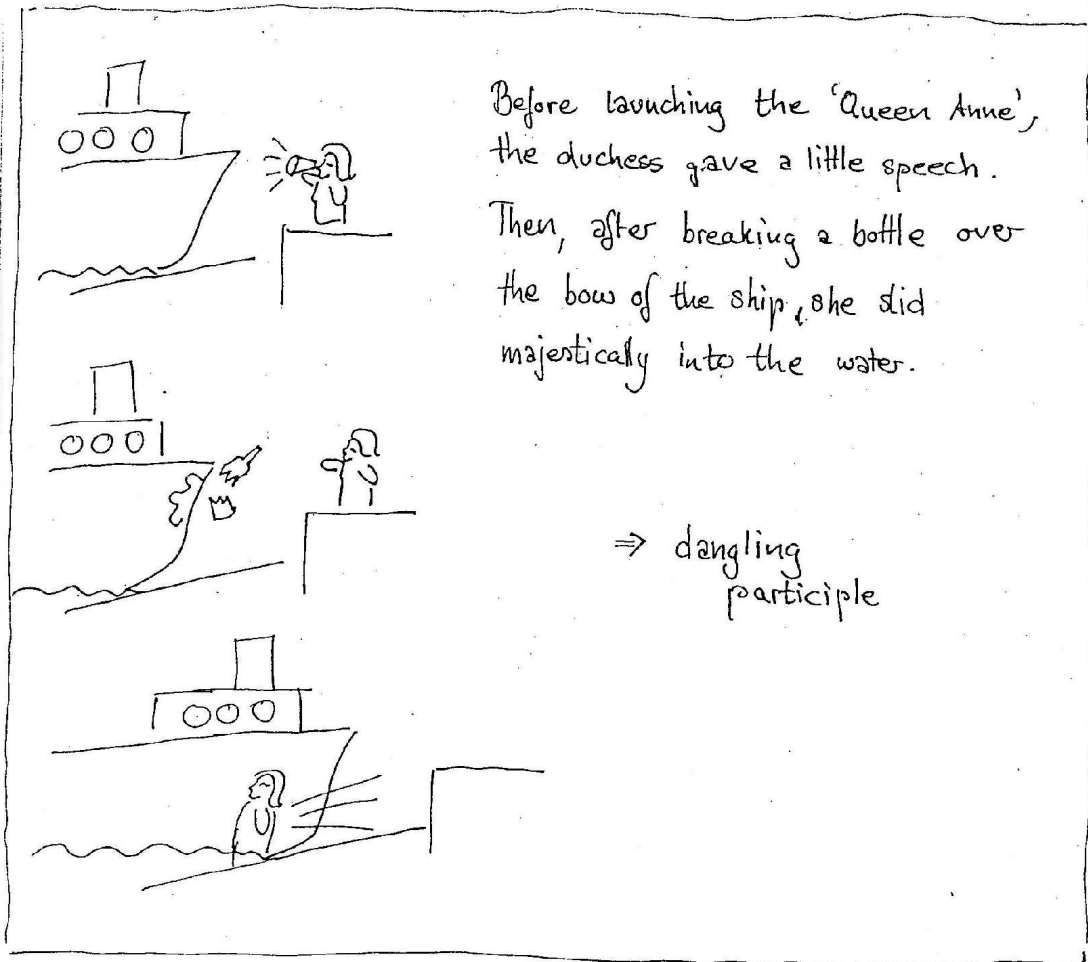 Before launching the 'Queen Anne',
the duchess gave a little speech.
Then, after breaking a bottle over
the bow of the ship, she slid
majestically into the water.
⇒ dangling
participle